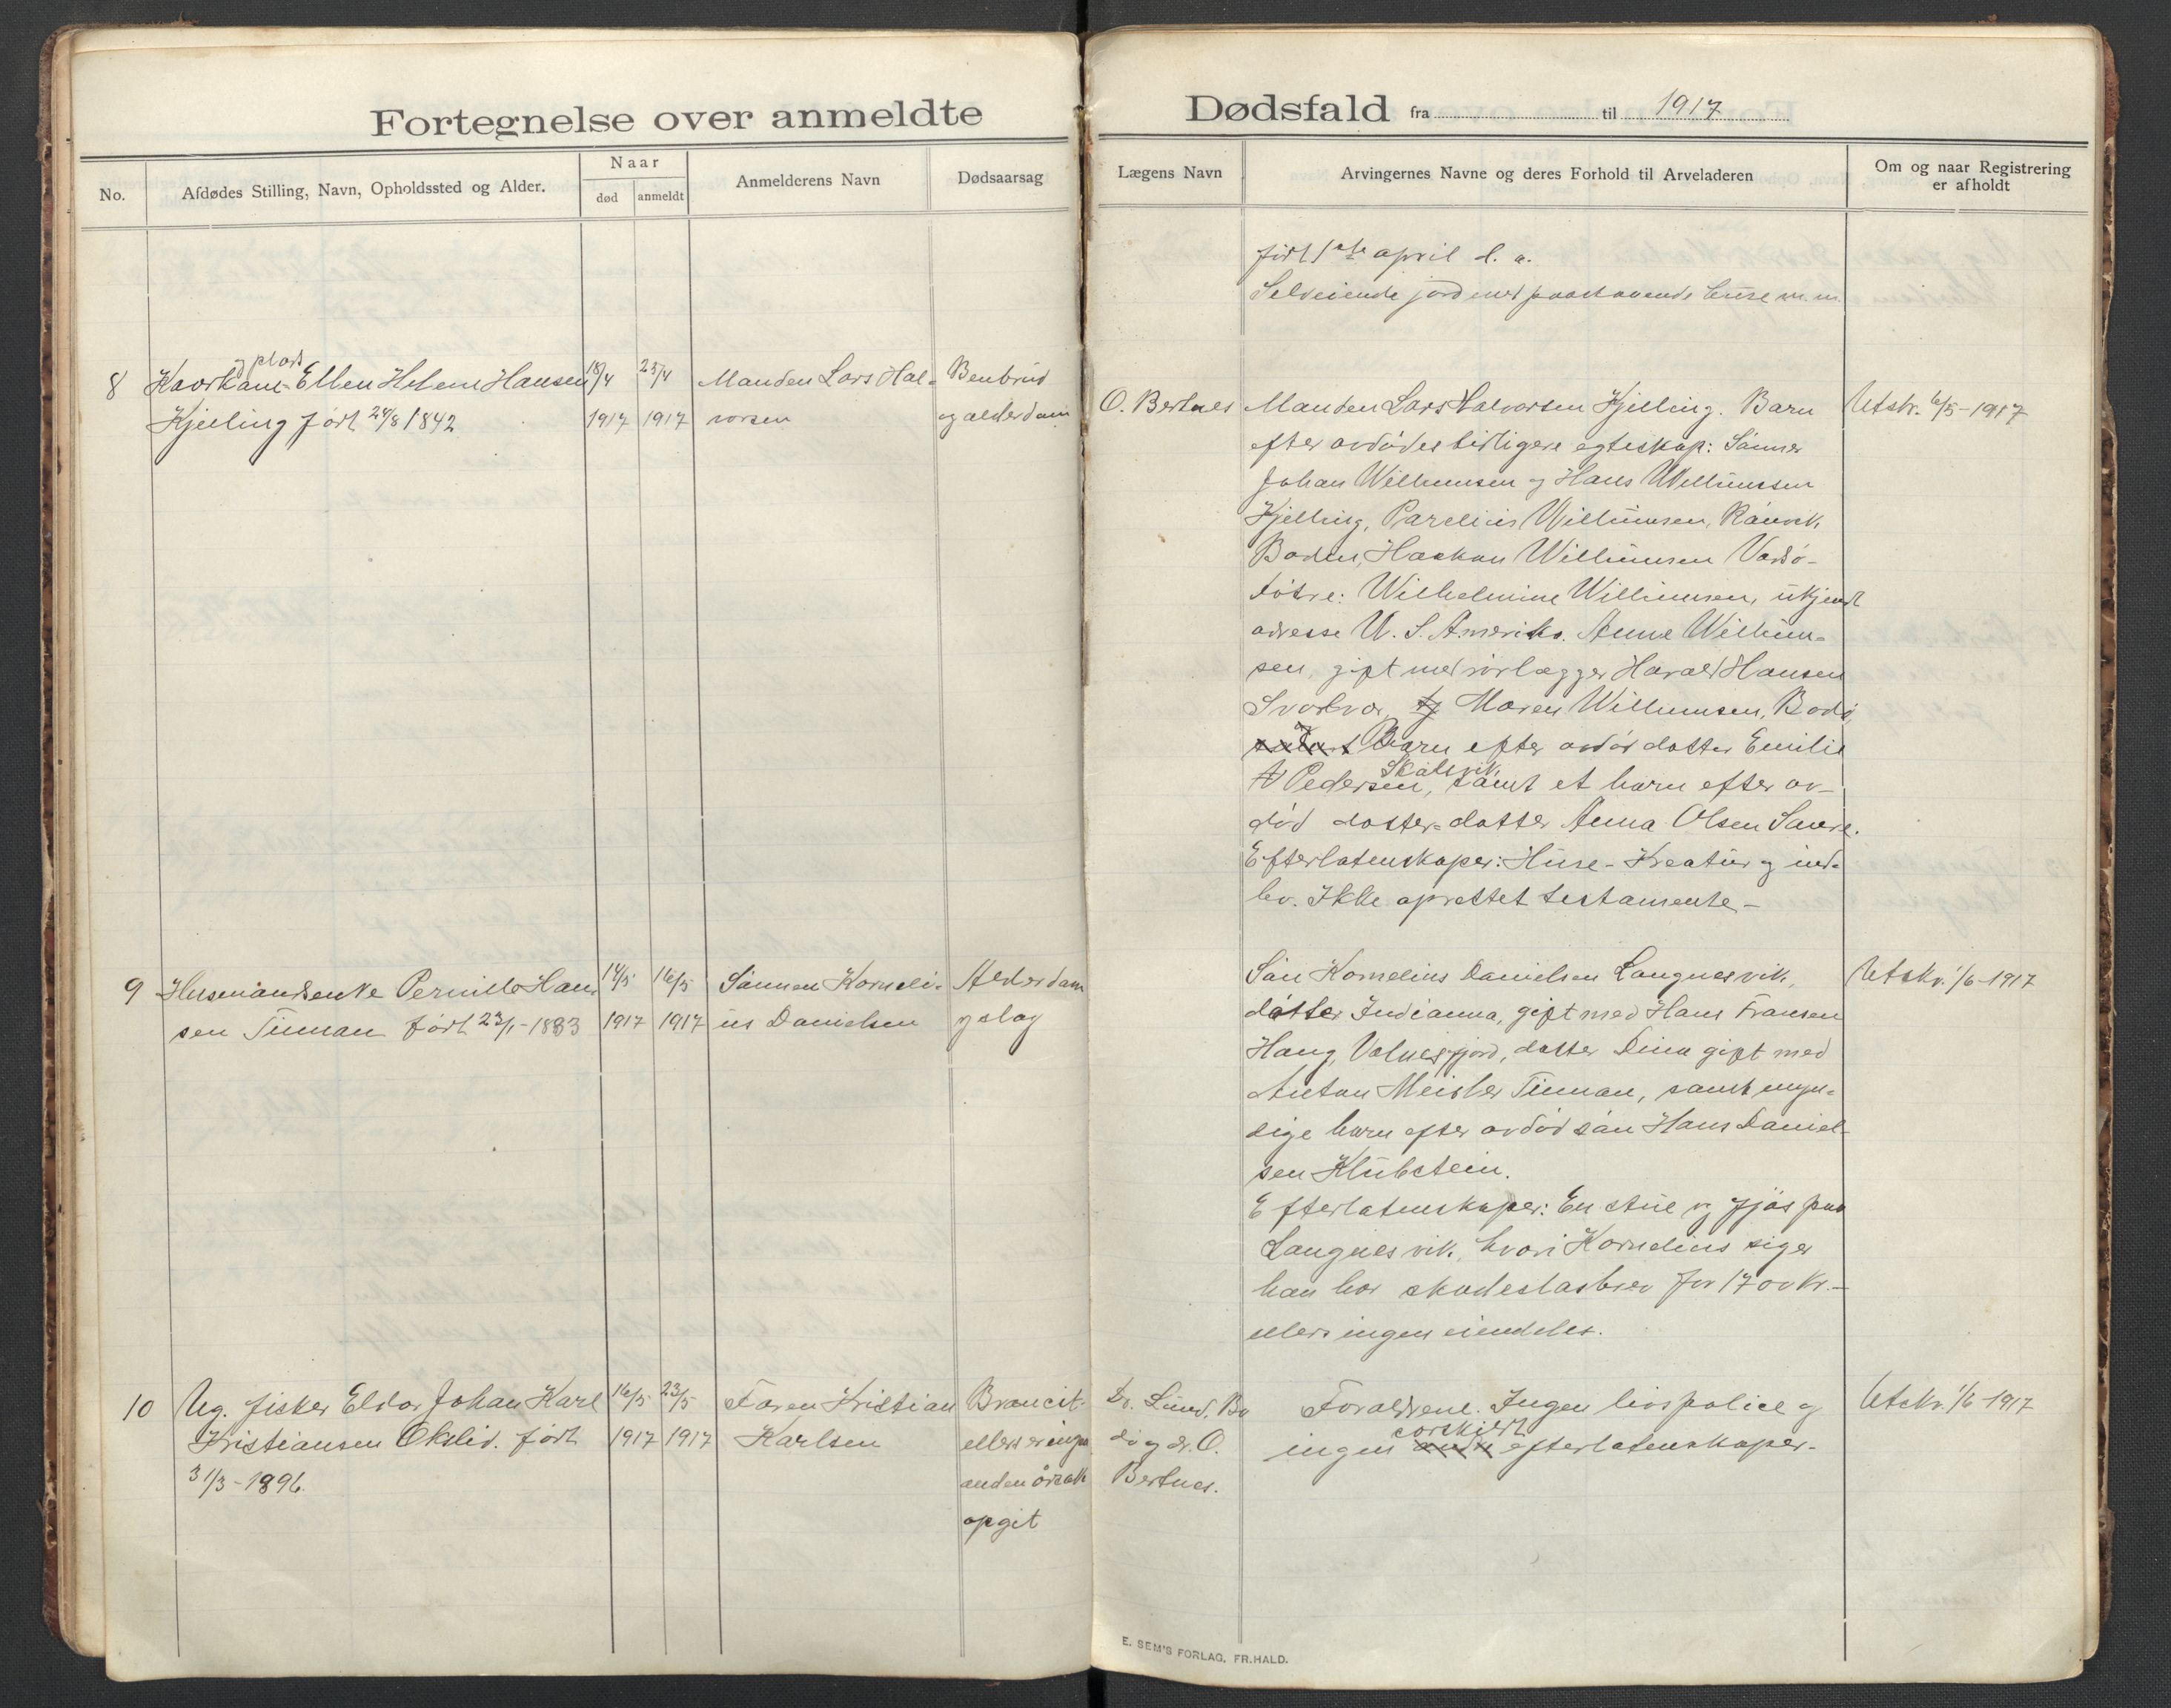 Fortegnelse over anmeldte
Dødsfald fra til 1917
No.
Afdødes Stilling, Navn, Opholdssted og Alder.
Naar
død
anmeldt
Anmelderens Navn
Dødsaarsag
Lægens Navn
Arvingernes Navne og deres Forhold til Arveladeren
Om og naar Registrering
er afholdt
født 1ste april d. a.
Selveiende jord med paastaaende huse m. m.
8
plads
Kaarkone Ellen Helene Hansen
Kjelling født 24/8 1842
18/4
1917
23/4
1917
Manden Lars Hal-
vorsen
Benbrud
og alderdom
O. Bertnes
Manden Lars Halvorsen Kjelling. Barn
efter avdødes tidligere egteskap: Sønner
Johan Willumsen og Hans Willumsen
Kjelling, Parelius Willumsen, Rønvik
Bodin, Haakon Willumsen Vadsø-
døtre: Wilhelmine Willumsen, ukjendt
adresse U. S. Amerika. Anne Willum-
sen, gift med rørlægger Harald Hansen
Svolvær, Maren Willumsen, Bodø,
Barn efter avdød datter Emilie
Skålsvik
Pedersen, samt et barn efter av-
død datter-datter Anna Olsen Saure.
Efterlatenskaper: Huse- Kreatur og ind-
bo. Ikke oprettet testamente-
Utskr. 6/5-1917
9
Husmandsenke Pernille Han-
sen Tuman født 23/1-1833
14/5
1917
16/5
1917
Sønnen Korneli-
us Danielsen
Alderdom
og slag
Søn Kornelius Danielsen Langnesvik,
datter Indianna, gift med Hans Fransen
Haug, Valnesfjord, datter Dina gift med
Anton Meisler Tuman, samt myn-
dige barn efter avdød søn Hans Daniel-
sen Klubstein.
Efterlatenskaper: En stue og fjøs paa
Langnesvik, hvori Kornelius siger
han har skadesløsbrev for 1700 kr.-
ellers ingen eiendeler.
Utskr. 1/6-1917
10
Ug. fisker Eldor Johan Karl
Kristiansen Økslid. født
31/3-1896.
16/5
1917
23/5
1917
Faren Kristian
Karlsen
Broncit.
ellers er ingen
anden årsak
opgit
Dr. Lund, Bo
dø og dr. O.
Bertnes.
Forældrene. Ingen livspolice og
særskilt
ingen efterlatenskaper.
Utskr. 1/6-1917
E. SEM'S FORLAG, FR.HALD.